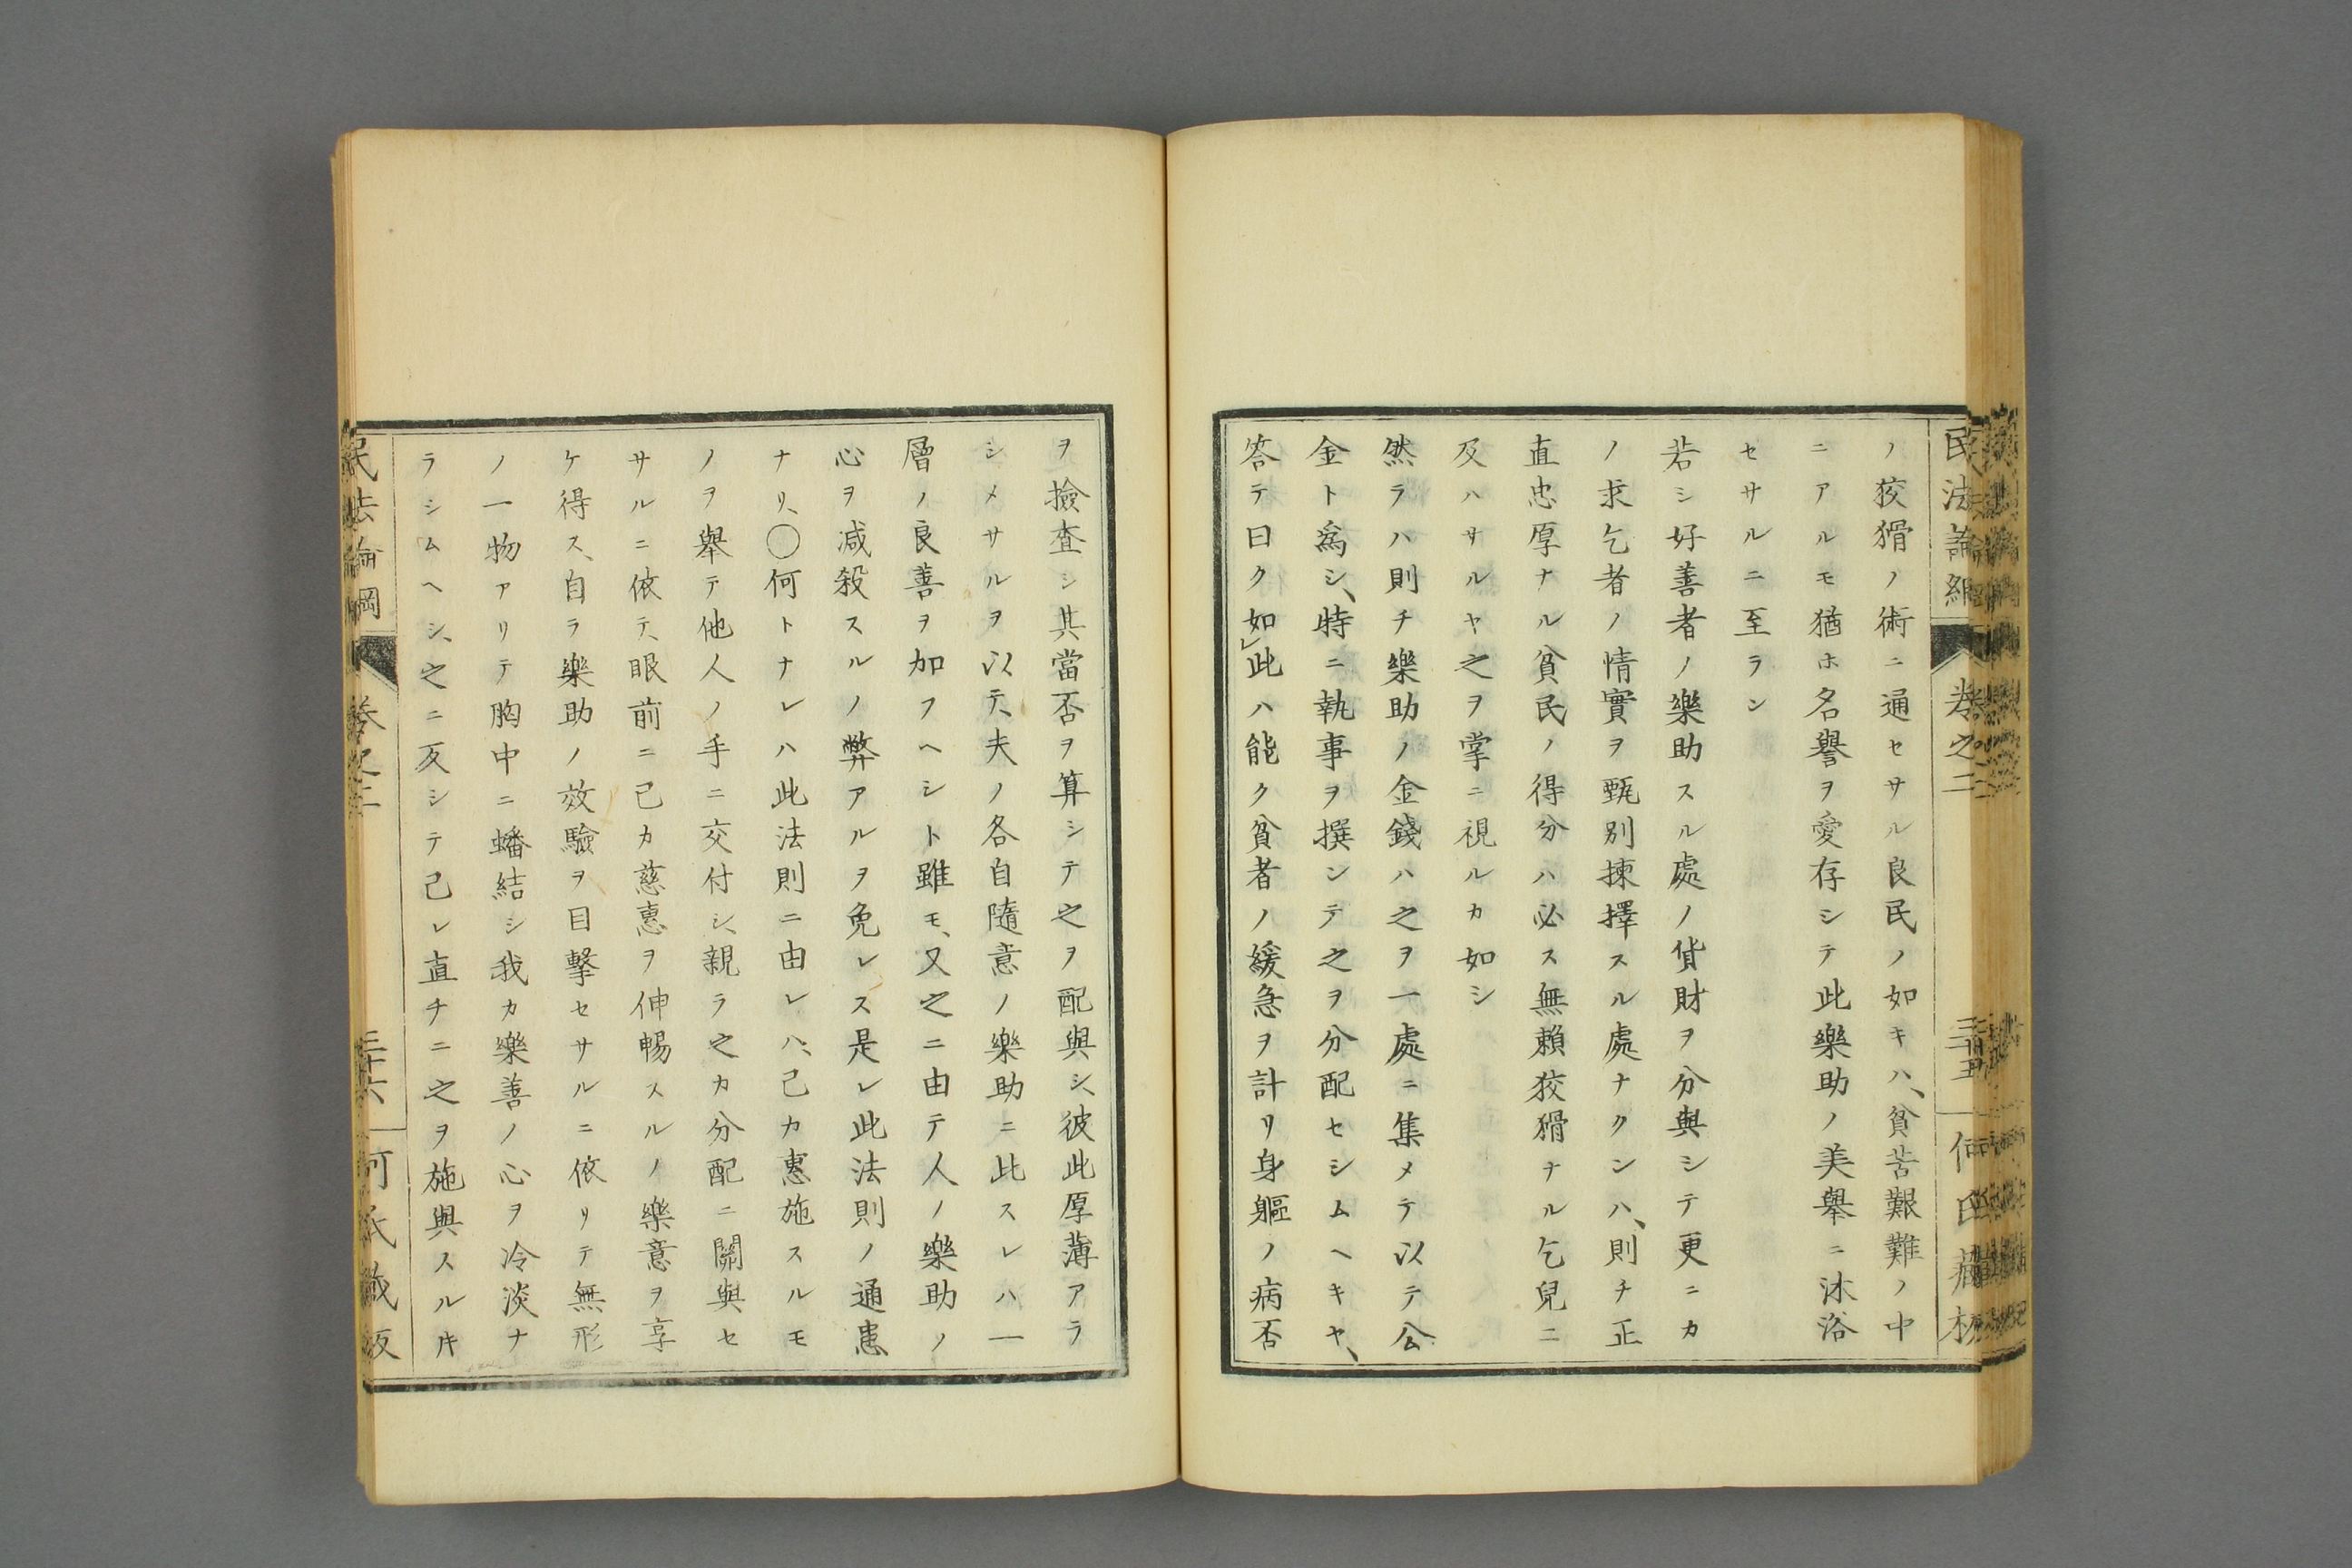 民法論綱 卷之二 三十五 何氏藏板
ノ狡猾ノ術ニ通セサル良民ノ如キハ、貧苦艱難ノ中
ニアルモ猶ホ名譽ヲ愛存シテ此樂助ノ美舉ニ沐浴
セサルニ至ラン
若シ好善者ノ樂助スル處ノ貨財ヲ分與シテ更ニカ
ノ求乞者ノ情實ヲ甄別揀擇スル處ナクンハ、則チ正
直忠厚ナル貧民ノ得分ハ必ス無賴狡猾ナル乞兒ニ
及ハサルヤ之ヲ掌ニ視ルカ如シ
然ラハ則チ樂助ノ金錢ハ之ヲ一處ニ集メテ以テ公
金ト爲シ、特ニ執事ヲ撰ンテ之ヲ分配セシムヘキヤ、
答テ曰ク如此ハ能ク貧者ノ緩急ヲ計リ身軀ノ病否
ヲ撿査シ其當否ヲ算シテ之ヲ配與シ、彼此厚薄アラ
シメサルヲ以テ、夫ノ各自隨意ノ樂助ニ此スレハ一
層ノ良善ヲ加フヘシト雖モ、又之ニ由テ人ノ樂助ノ
心ヲ減殺スルノ弊アルヲ免レス是レ此法則ノ通患
ナリ、〇何トナレハ此法則ニ由レハ、己カ惠施スルモ
ノヲ舉テ他人ノ手ニ交付シ、親ラ之カ分配ニ關與セ
サルニ依テ、眼前ニ己カ慈惠ヲ伸暢スルノ樂意ヲ享
ケ得ス、自ラ樂助ノ效驗ヲ目擊セサルニ依リテ無形
ノ一物アリテ胸中ニ蟠結シ我カ樂善ノ心ヲ冷淡ナ
ラシムヘシ、之ニ反シテ己レ直チニ之ヲ施與スル𪜈
民法論綱 卷之二 三十六 何氏藏版